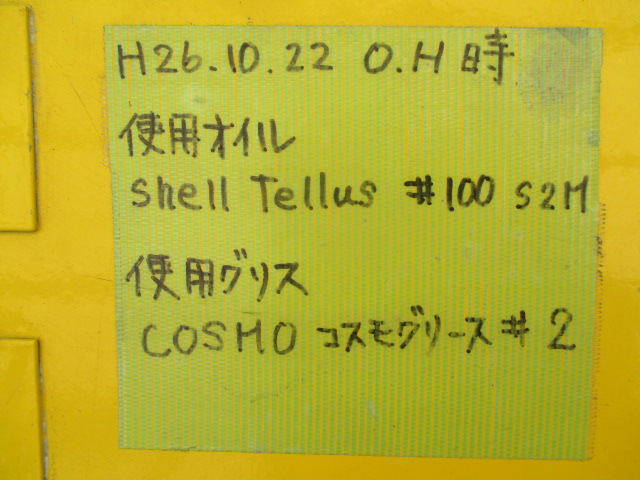 H26.10.22 O.H時
使用オイル
shell Tellus #100 S2M
使用グリス
COSMO コスモグリース#2